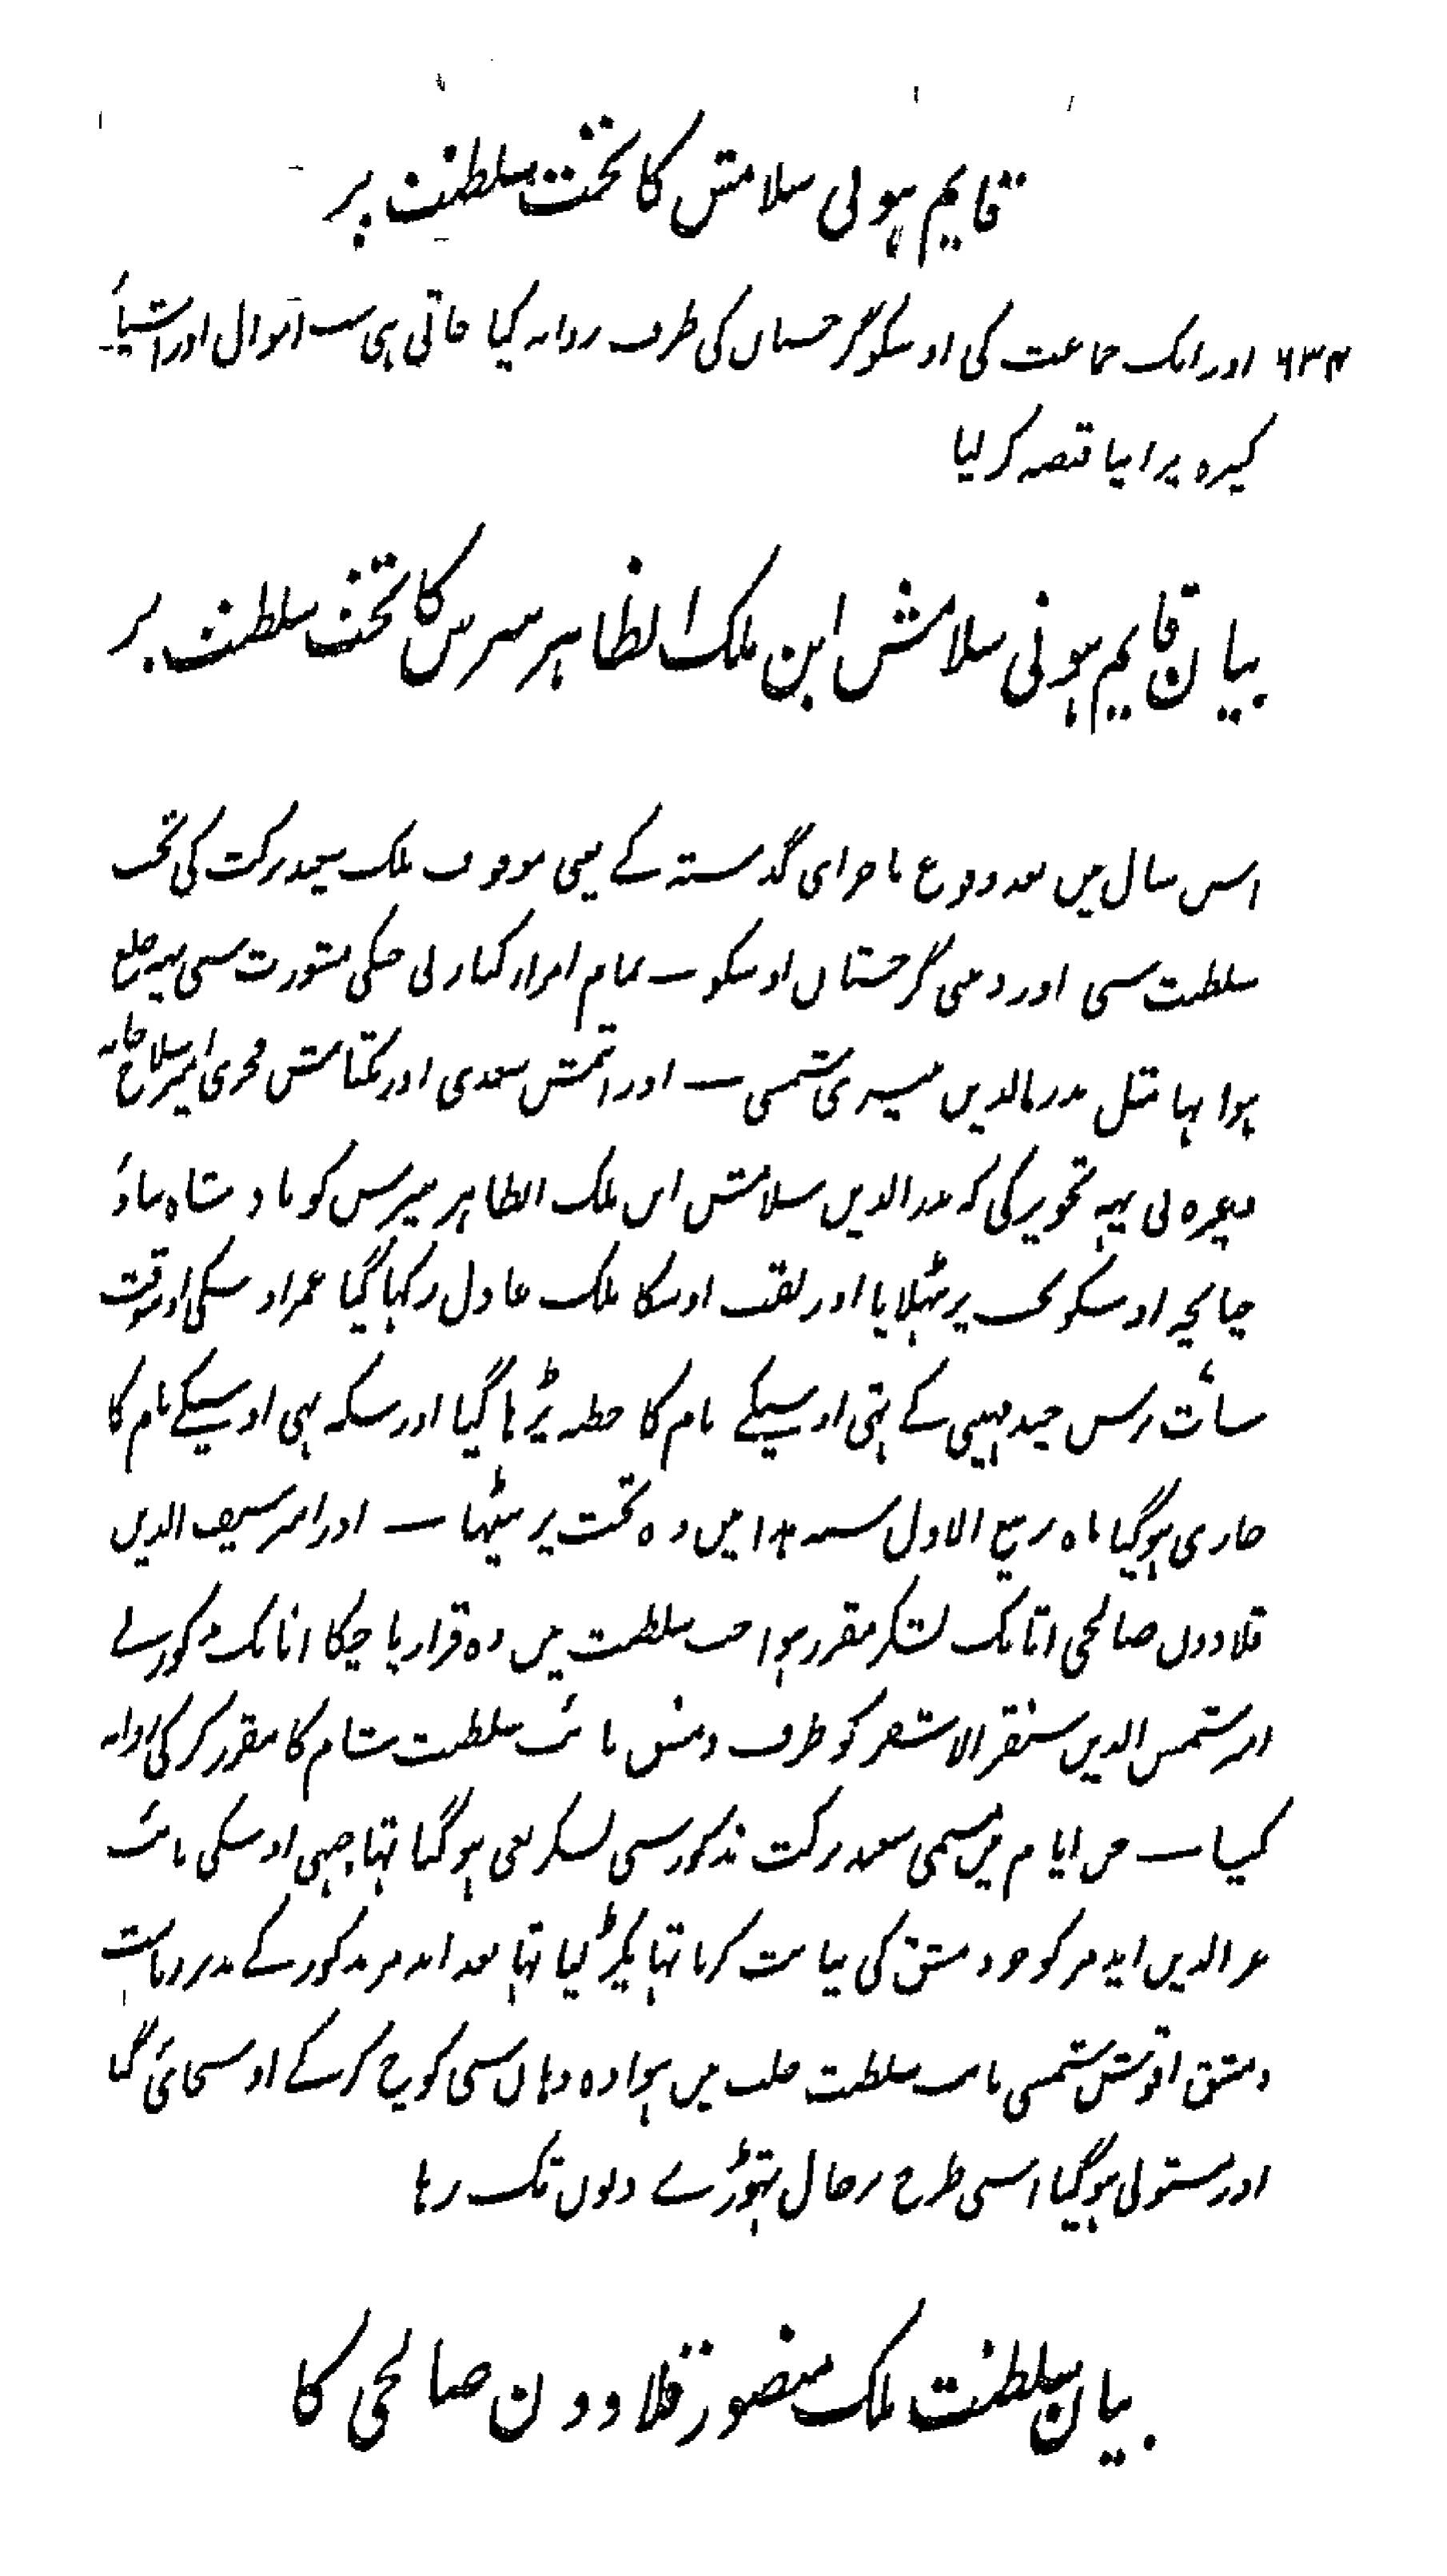 قایم ہونی سلامش کا تخت سلطنت پر
۶۳۴ اور ایک جماعت کی اوسکو گرجستان کی طرف روانہ کیا جاتی ہی سب اموال اور اشیاء
کیرہ پر اپنا قبضہ کر لیا
بیان قایم ہونی سلامش ابن ملک الظاہر بیبرس کا تخت سلطنت پر
اس سال میں بعد وقوع ماجرای گذشتہ کے یعنی موقوف ملک سعید برکت کی تخت
سلطنت سی اور دہنی گرجستان اوسکو ـ تمام امراء کبار نی جنکی مشورت سی یہہ خلع
ہوا تہا مثل بدرالدین بیسری شمسی ـ اور اتمش سعدی اور بکتاش فخری امیر سلاح خانہ
وغیرہ نی یہہ تجویز کی کہ بدرالدین سلامش ابن ملک الظاہر بیبرس کو بادشاہ بناؤ
چنانچہ اوسکو تخت پر بٹہلایا اور لقب اوسکا ملک عادل رکہا گیا عمر اوسکی اوسوقت
سات برس چند مہینی کے تہی اوسیکے نام کا خطبہ پڑہا گیا اور سکہ بہی اوسیکے نام کا
جاری ہوگیا ماہ ربیع الاول سنہ میں وہ تخت پر بیٹہا ـ اور امیر سیف الدین
قلاوون صالحی اتابک لشکر مقرر ہوا جب سلطنت میں وہ قرار پا چکا اتابک مذکور نے
امیر شمس الدین سنقر الاشقر کو طرف دمشق نائب سلطنت شام کا مقرر کر کی روانہ
کیا ـ جن ایام میں مسمی سعید برکت مذکور سی لشکر بغی ہوگیا تہا جبہی اوسکی نائب
عزالدین ایدمر کو جو دمشق کی نیابت کرتا تہا پکڑ لیا تہا بعد ایدمر مذکور کے مدبر ریاست
دمشق اقوش شمسی نائب سلطنت حلب میں ہوا وہ وہاں سی کوچ کرکے اوسجائی گیا
اور مستولی ہوگیا اسی طرح پر حال تہوڑے دنوں تک رہا
بیان سلطنت ملک منصور قلاوون صالحی کا